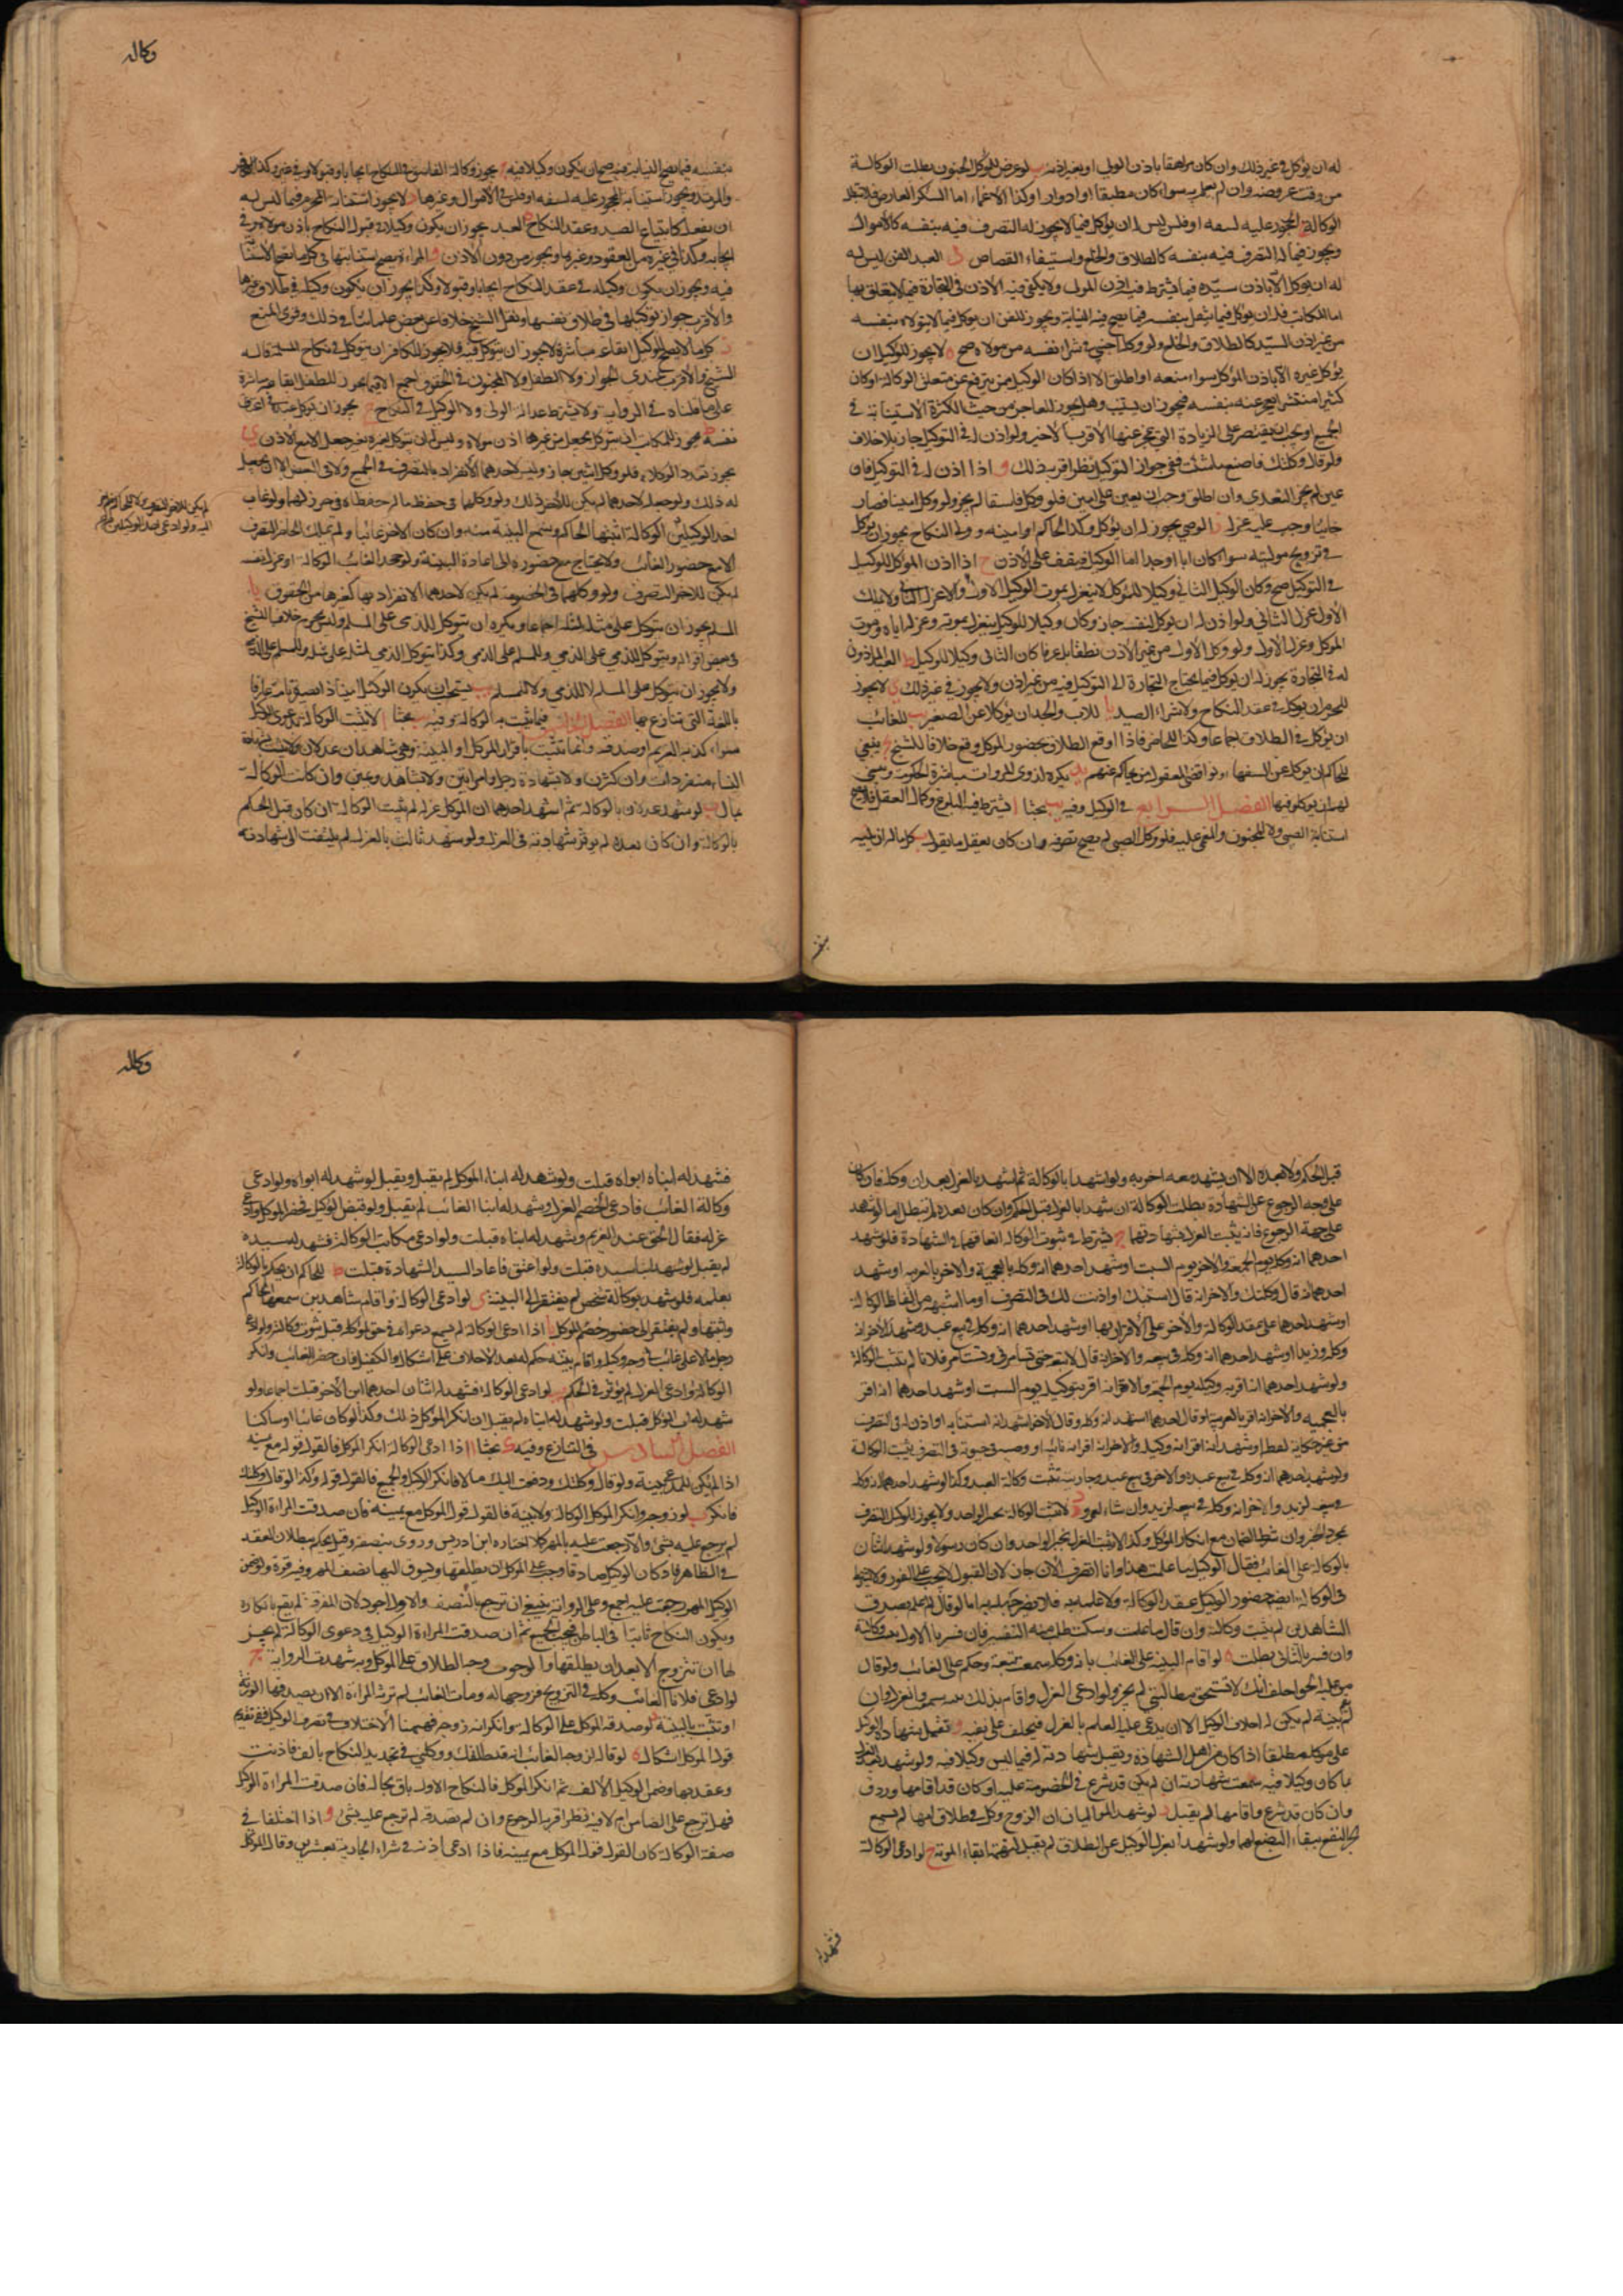 له ان يوكل في غير ذلك وان كان مراهقا باذن الولي او بغير اذنه ب لو عرض للموكل الجنون بطلت الوكالة
من وقت عروضه وان لم يعلم به سواء كان مطبقا او ادوارا وكذا الاغماء اما السكر العارض فلا تبطل
الوكالة ج المحجور عليه لسفه او فلس ليس له ان يوكل فيما لا يجوز له التصرف فيه بنفسه كالاموال
ويجوز فيما له التصرف فيه بنفسه كالطلاق والخلع واستيفاء القصاص د العبد القن ليس له
له ان يوكل الا باذن سيده فيما يشترط فيه اذن المولى ولا يكفي فيه الاذن في التجارة فيما لا يتعلق بها
اما المكاتب فله ان يوكل فيما يفعل بنفسه فيما يصح فيه النيابة ويجوز للقن ان يوكل فيما لا يتولاه بنفسه
من غير اذن السيد كالطلاق والخلع ولو وكله اجنبي في شراء نفسه من مولاه صح ه لا يجوز للوكيل ان
يوكل غيره الا باذن الموكل سواء منعه او اطلق الا اذا كان الوكيل ممن يترفع عن متعلق الوكالة او كان
كثيرا منتشرا يعجز عنه بنفسه فيجوز ان يستنيب وهل يجوز للعاجز من حيث الكثرة الاستنابة في
الجميع او يجب ان يقتصر على الزيادة التي عجز عنها الاقرب الاخير ولو اذن له في التوكيل جاز بلا خلاف
ولو قال وكلتك فاصنع ما شئت ففي جواز التوكيل نظر اقربه ذلك و اذا اذن له في التوكيل فان
عين لم يجز التعدي وان اطلق وجب ان يعين على امين فلو وكل فاسقا لم يجز ولو وكل امينا فصار
خائنا وجب عليه عزله ز الوصي يجوز له ان يوكل وكذا الحاكم او امينه وولي النكاح يجوز ان يوكل
في تزويج موليته سواء كان ابا او جدا اما الوكيل فيقف على الاذن ح اذا اذن الموكل للوكيل
في التوكيل صح وكان الوكيل الثاني وكيلا للموكل لا ينعزل بموت الوكيل الاول ولا عزله الثاني ولا يملك
الاول عزل الثاني ولو اذن له ان يوكل لنفسه جاز وكان وكيلا للوكيل ينعزل بموته وعزله اياه وموت
الموكل وعزل الاول ولو وكل الاول من غير الاذن نطقا بل عرفا كان الثاني وكيلا للوكيل ط العبد الماذون
له في التجارة يجوز له ان يوكل فيما يحتاج التجارة الى التوكيل فيه من غير اذن ولا يجوز في غير ذلك ى لا يجوز
للمحرم ان يوكل في عقد النكاح ولا شراء الصيد يا للاب والجد ان يوكلا عن الصغير يب للغائب
ان يوكل في الطلاق اجماعا وكذا للحاضر فاذا اوقع الطلاق بحضور الموكل وقع خلافا للشيخ يج ينبغي
للحاكم ان يوكل عن السفهاء يد يكره لذوي المروات مباشرة الحكومة وينبغي
لهم ان يوكلوا فيها الفصل الرابع في الوكيل وفيه يب بحثا ا يشترط فيه البلوغ وكمال العقل فلا يصح
استنابة الصبي ولا المجنون والمغمى عليه فلو وكل الصبي لم يصح تصرفه وان كان يعقل ما يقول ب كل ما له ان يليه
بنفسه
وكاله
بنفسه فيما يصح النيابة فيه صح ان يكون وكيلا فيه ج يجوز وكالة الفاسق في النكاح ايجابا وقبولا وفي غيره وكذا الكافر
والمرتد ويجوز استنابة المحجور عليه لسفه او فلس في الاموال وغيرها د لا يجوز استنابة المحرم فيما ليس له
ان يفعله كابتياع الصيد وعقد النكاح ه العبد يجوز ان يكون وكيلا في قبول النكاح باذن مولاه وفي
ايجابه وكذا في غيره من العقود وغيرها ويجوز من دون الاذن و المراة يصح استنابتها في كل ما يصح الاستنابة
فيه ويجوز ان يكون وكيله في عقد النكاح ايجابا وقبولا وكذا يجوز ان يكون وكيله في طلاق غيرها
والاقرب جواز توكيلها في طلاق نفسها ونقل الشيخ خلافا عن بعض علمائنا في ذلك وقوى المنع
ز كل ما لا يصح للوكيل ايقاعه مباشرة لا يجوز ان يتوكل فيه فلا يجوز للكافر ان يتوكل في نكاح المسلمة قاله
الشيخ والاقرب عندي الجواز ولا الطفل ولا المجنون في الحقوق اجمع الا فيما يجوز للطفل ايقاعه مباشرة
على ما قلناه في الرواية ولا يشترط عدالة الولي ولا الوكيل في النكاح ح يجوز ان توكل عبده في اعتاق
نفسه ط يجوز للمكاتب ان يتوكل بجعل من غيرها اذن مولاه وليس له ان يتوكل لغيره بغير جعل الا مع الاذن ى
يجوز تعدد الوكلاء فلو وكل اثنين جاز وليس لاحدهما الانفراد بالتصرف في الجميع ولا في البعض الا ان يجعل
له ذلك ولو جعله لاحدهما لم يكن للاخر ذلك ولو وكلهما في حفظ ماله حفظاه في حرز لهما ولو غاب
احد الوكيلين الوكالة اثبتها الحاكم وسمع البينة منه وان كان الاخر غائبا ولم يملك الحاضر التصرف
الا مع حضور الغائب ولا يحتاج مع حضوره الى اعادة البينة ولو جحد الغائب الوكالة او عزل نفسه
لم يكن للاخر التصرف ولو وكلهما في الخصومة لم يكن لاحدهما الانفراد بها كغيرها من الحقوق يا
المسلم يجوز ان يتوكل على مثله لمثله اجماعا ويكره ان يتوكل للذمي على المسلم وليس بمحرم خلافا للشيخ
في بعض اقواله ويتوكل للذمي على الذمي وللمسلم على الذمي وكذا يتوكل الذمي لمثله على مثله وللمسلم على الذمي
ولا يجوز ان يتوكل على المسلم لا للذمي ولا للمسلم يب يستحب ان يكون الوكيل ذا بصيرة تامة عارفا
باللغة التي تنازع بها الفصل الخامس فيما يثبت به الوكالة وفيه يب بحثا ا لا يثبت الوكالة بدعوى الوكيل
سواء كذبه الغريم او صدقه وانما تثبت باقرار الموكل او البينة وهي شاهدان عدلان ولا يثبت بشهادة
النساء منفردات وان كثرن ولا بشهادة رجل وامراتين ولا بشاهد ويمين وان كانت الوكالة
بمال ب لو شهد عدلان بالوكالة ثم شهد احدهما ان الموكل عزله لم يثبت الوكالة ان كان قبل الحكم
بالوكالة وان كان بعده لم يوثر شهادته في العزل ولو شهد ثالث بالعزل لم يلتفت الى شهادته
قبل الحكم ولا بعده الا ان يشهد معه اخر به ولو شهدا بالوكالة ثم شهدا بالعزل بعد ان وكله فان كان
على وجه الرجوع عن الشهادة بطلت الوكالة ان شهدا بالعزل قبل الحكم وان كان بعده لم تبطل اما لو شهد
على جهة الرجوع فانه يثبت العزل بشهادتهما ج يشترط في ثبوت الوكالة اتفاقهما في الشهادة فلو شهد
احدهما انه وكله يوم الجمعة والاخر يوم السبت او شهد احدهما انه وكله بالعجمية والاخر بالعربية او شهد
احدهما انه قال وكلتك والاخر انه قال استنبتك او اذنت لك في التصرف او ما اشبهه من الفاظ الوكالة
او شهد احدهما على عقد الوكالة والاخر على الاقرار بها او شهد احدهما انه وكله في بيع عبده وشهد الاخر انه
وكله وزيدا او شهد احدهما انه وكله في بيعه والاخر انه قال لا تبعه حتى تستامرني وتستامر فلانا لم تثبت الوكالة
ولو شهد احدهما انه اقر به وكيله يوم الجمعة والاخر انه اقر بتوكيله يوم السبت او شهد احدهما انه اقر
بالعجمية والاخر انه اقر بالعربية او قال احدهما اشهد انه وكله وقال الاخر اشهد انه استنابه او اذن له في التصرف
من غير حكاية لفظ او شهد انه اقر انه وكيله والاخر انه اقر انه نائبه او وصيه في حيوته في التصرف يثبت الوكالة
ولو شهد احدهما انه وكله في بيع عبده والاخر في بيع عبده وجاريته تثبت وكالة العبد وكذا لو شهد احدهما انه وكله
في بيعه لزيد والاخر انه وكله في بيعه لزيد وان شاء لعمرو د لا يثبت الوكالة بخبر الواحد ولا يجوز للوكيل التصرف
بمجرد الخبر وان شرط الضمان مع انكار الموكل وكذا لا يثبت العزل بخبر الواحد وان كان رسولا ولو شهد اثنان
بالوكالة على الغائب فقال الوكيل ما علمت هذا وانا اتصرف الان جاز لان القبول لا يجب على الفور ولا يشترط
في الوكالة ايضا حضور الوكيل عقد الوكالة ولا علمه به فلا يضر جهله به اما لو قال لم اعلم صدق
الشاهدين لم يثبت وكالته وان قال ما علمت وسكت طلب منه التفسير فان فسر بالاول ثبتت وكالته
وان فسر بالثاني بطلت ه لو اقام البينة على الغائب بانه وكله سمعت بينته وحكم على الغائب ولو قال
من عليه الحق احلف انك لا تستحق مطالبتي لم يجز ولو ادعى العزل واقام بذلك بينة سمعت وانعزل وان
لم بينة لم يكن له احلاف الوكيل الا ان يدعي عليه العلم بالعزل فيحلف على نفيه و تقبل شهادة الوكيل
على موكله مطلقا اذا كان من اهل الشهادة وتقبل شهادته له فيما ليس وكيلا فيه ولو شهد بعد العزل
ما كان وكيلا فيه سمعت شهادته ان لم يكن قد شرع في الخصومة عليه او كان قد اقامها وردت
وان كان قد شرع واقامها لم يقبل ز لو شهد الموليان ان الزوج وكل في طلاق امها لم تسمع
لجر النفع ببقاء البضع لهما ولو شهدا بعزل الوكيل عن الطلاق لم يقبل لتهمة ابقاء الموتة ح لو ادعى الوكالة
فشهد له
وكاله
فشهد له ابناه او ابواه قبلت ولو شهد له ابناء الموكل لم يقبل ويقبل لو شهد له ابواه ولو ادعى
وكالة الغائب فادعى الخصم العزل وشهد له ابنا الغائب لم يقبل ولو قبض الوكيل فحضر الموكل وادعى
عزله فقال الحق عند الغريم وشهد له ابناه قبلت ولو ادعى مكاتب الوكالة فشهد له سيده
لم يقبل لو شهد له ابنا سيده قبلت ولو اعتق فاعاد السيد الشهادة قبلت ط للحاكم ان يحكم بالوكالة
بعلمه فلو شهد بوكالة شخص لم يفتقر الى البينة ى لو ادعى الوكالة واقام شاهدين سمعها الحاكم
واثبتها ولم يفتقر الى حضور خصم الموكل يا اذا ادعى الوكالة لم تسمع دعواه في حق لموكله قبل ثبوت وكالته ولو ادعى
رجل مالا على غائب في وجه وكيله واقام بينة حكم له بعد الاحلاف على اشكال والكفيل فان حضر الغائب وانكر
الوكالة وادعى العزل لم يوثر في الحكم يب لو ادعى الوكالة فشهد له اثنان احدهما ابن الاخر قبلت اجماعا ولو
شهد له اب الموكل قبلت ولو شهد له ابناه لم يقبل ان انكر الموكل ذلك وكذا لو كان غائبا او ساكتا
الفصل السادس في التنازع وفيه بحثا ا اذا ادعى الوكالة انكر الموكل فالقول قوله مع يمينه
اذا لم يكن للمدعي بينة ولو قال وكلتك ودفعت اليك مالا فانكر الوكيل الجميع فالقول قوله وكذا لو قال وكلتك
فانكر ب لو زوجه وانكر الموكل الوكالة ولا بينة فالقول قول الموكل مع يمينه فان صدقت المراة الوكيل
لم يرجع عليه بشئ والا رجعت عليه بالمهر كلا اختاره ابن ادريس وروى بنصفه وقيل يحكم ببطلان العقد
في الظاهر فان كان الوكيل صادقا وجب على الموكل ان يطلقها ويسوق اليها نصف المهر وفيه قوة ولو ضمن
الوكيل المهر رجعت عليه اجمع وعلى الرواية ينبغي ان ترجع بالنصف والاول اجود لان الفرقة لم يقع بانكاره
ويكون النكاح ثابتا في الباطن فيجب الجميع ثم ان صدقت المراة الوكيل في دعوى الوكالة لم يجز
لها ان تتزوج الا بعد ان يطلقها والوجه وجب الطلاق على الموكل وبه شهدت الرواية ج
لو ادعى فلانا الغائب وكله في التزويج فزوجها له ومات الغائب لم ترثه المراة الا ان يصدقها الورثة
او تثبت بالبينة د لو صدقه الموكل على الوكالة وانكر انه زوجه فههنا الاختلاف في تصرف الوكيل ففي تقديم
قول الموكل اشكال ه لو قال لزوجة الغائب انه قد طلقك ووكلني في تجديد النكاح بالف فاذنت
وعقد بها وضمن الوكيل الالف ثم انكر الموكل فالنكاح الاول باق بحاله فان صدقت المراة الوكيل
فهل ترجع على الضامن ام لا فيه نظر اقربه الرجوع وان لم تصدقه لم ترجع عليه بشئ و اذا اختلفا في
صفة الوكالة كان القول قول الموكل مع يمينه فاذا ادعى اذنه في شراء الجارية بعشرين وقال الموكل